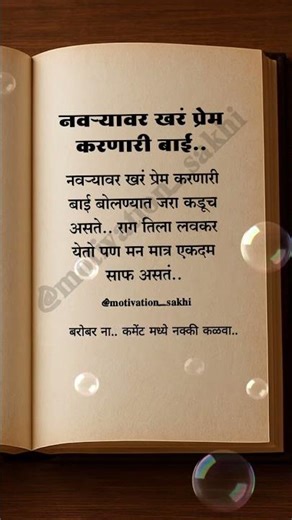 नवऱ्यावर खरं प्रेम
करणारी बाई..
नवऱ्यावर खरं प्रेम करणारी
बाई बोलण्यात जरा कडूच
असते.. राग तिला लवकर
येतो पण मन मात्र एकदम
साफ असतं..
@motivation_sakhi
बरोबर ना.. कमेंट मध्ये नक्की कळवा..
@motivation_sakhi